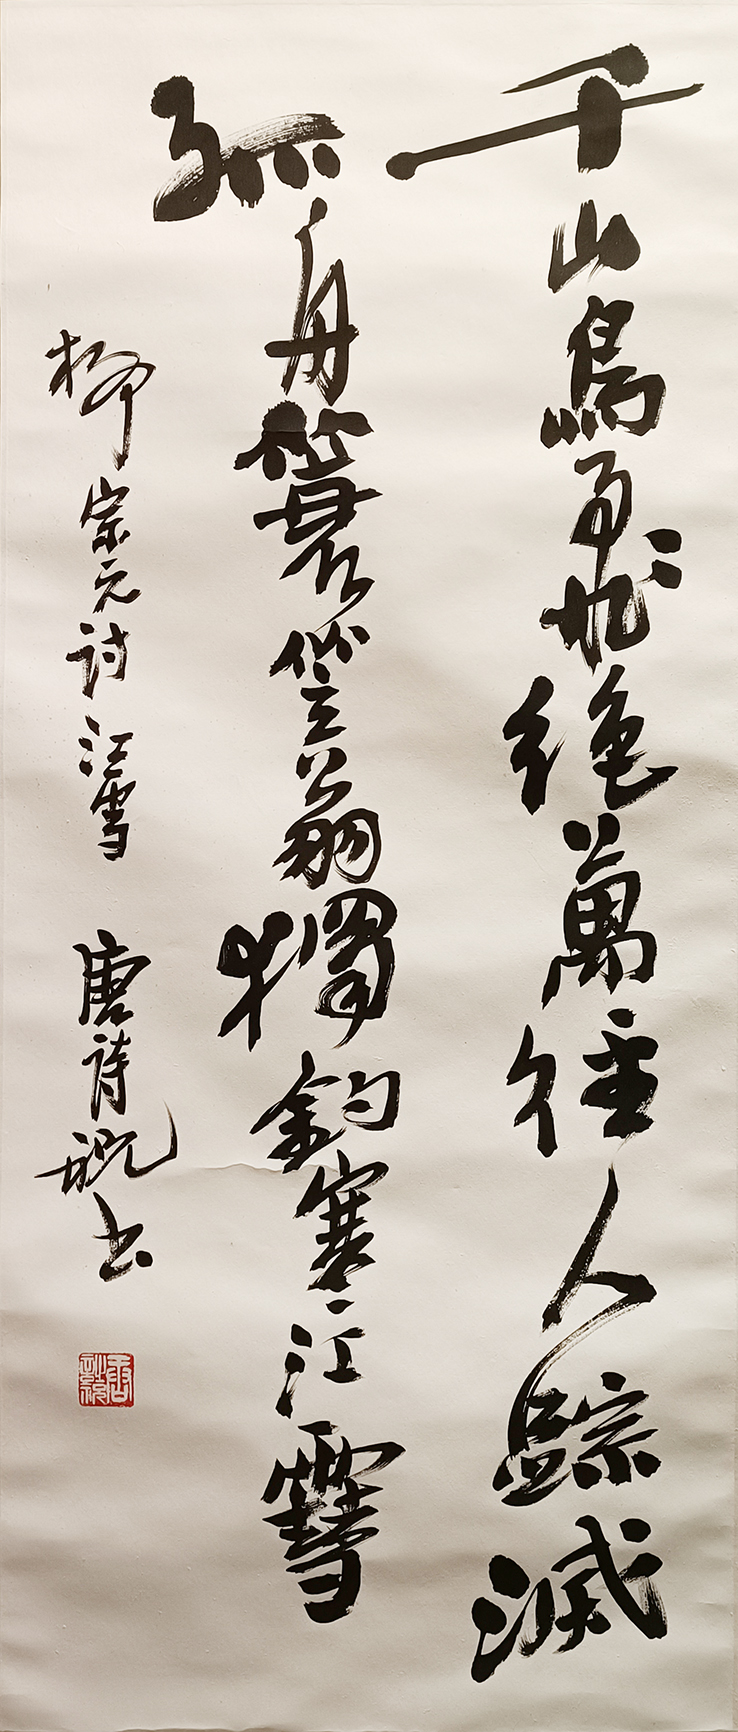 千山鳥飛絕萬徑人踪滅
孤舟簑笠翁獨釣寒江雪
柳宗元詩江雪 唐詩祝书